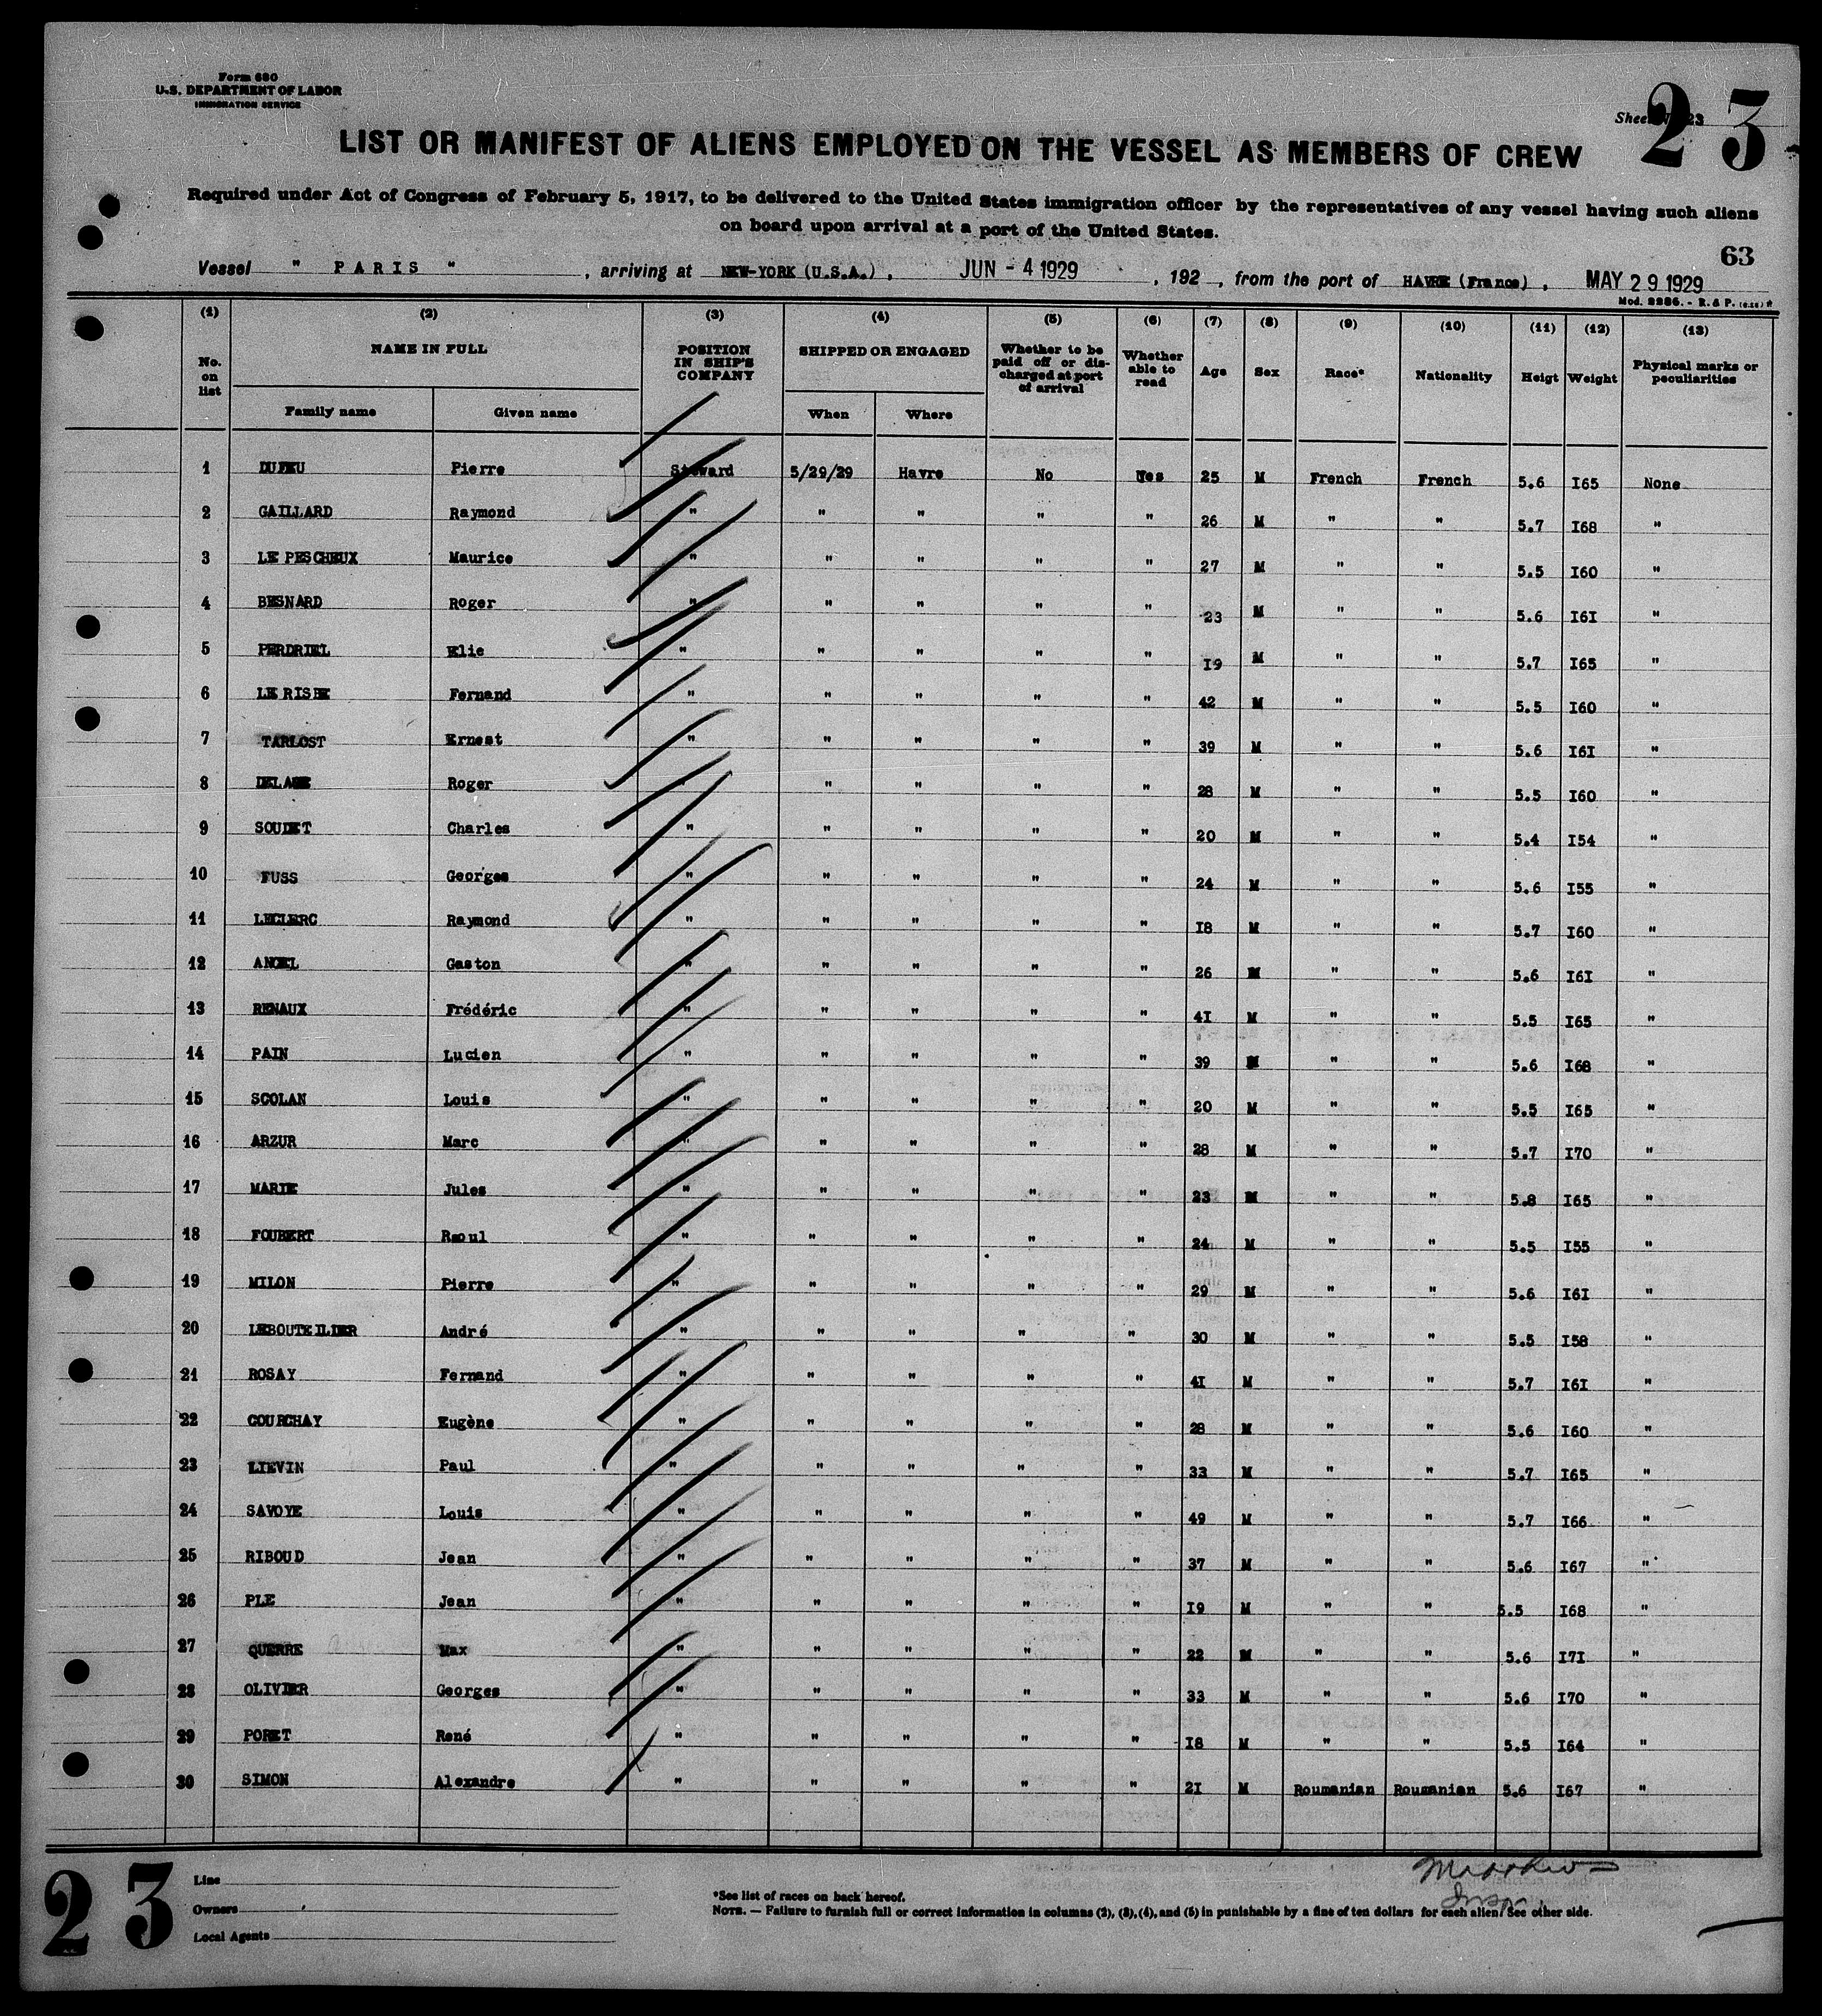 Form 680
U.S. DEPARTMENT OF LABOR
IMMIGRATION SERVICE
Sheet 23
23
LIST OR MANIFEST OF ALIENS EMPLOYED ON THE VESSEL AS MEMBERS OF CREW
Required under Act of Congress of February 5, 1917, to be delivered to the United States immigration officer by the representatives of any vessel having such aliens
on board upon arrival at a port of the United States.
63
Vessel " PARIS " , arriving at NEW-YORK (U.S.A.) , JUN - 4 1929 , 192 , from the port of HAVRE (France) , MAY 29 1929
Mod. 2286. - R. & P.
(1) (2) (3) (4) (5) (6) (7) (8) (9) (10) (11) (12) (13)
No. on list NAME IN FULL POSITION IN SHIP'S COMPANY SHIPPED OR ENGAGED Whether to be paid off or discharged at port of arrival Whether able to read Age Sex Race* Nationality Heigt Weight Physical marks or peculiarities
Family name Given name When Where
1 DUFEU Pierre Steward 5/29/29 Havre No Yes 25 M French French 5.6 I65 None
2 GAILLARD Raymond " " " " " 26 M " " 5.7 I68 "
3 LE PESCHEUX Maurice " " " " " 27 M " " 5.5 I60 "
4 BESNARD Roger " " " " " 23 M " " 5.6 I6I "
5 PERDRIEL Elie " " " " " I9 M " " 5.7 I65 "
6 LE RISBE Fernand " " " " " 42 M " " 5.5 I60 "
7 TARLOST Ernest " " " " " 39 M " " 5.6 I6I "
8 DELAGE Roger " " " " " 28 M " " 5.5 I60 "
9 SOUDET Charles " " " " " 20 M " " 5.4 I54 "
10 FUSS Georges " " " " " 24 M " " 5.6 I55 "
11 LECLERC Raymond " " " " " I8 M " " 5.7 I60 "
12 ANGEL Gaston " " " " " 26 M " " 5.6 I6I "
13 RENAUX Frédéric " " " " " 4I M " " 5.5 I65 "
14 PAIN Lucien " " " " " 39 M " " 5.6 I68 "
15 SCOLAN Louis " " " " " 20 M " " 5.5 I65 "
16 ARZUR Marc " " " " " 28 M " " 5.7 I70 "
17 MARIE Jules " " " " " 23 M " " 5.8 I65 "
18 FOUBERT Raoul " " " " " 24 M " " 5.5 I55 "
19 MILON Pierre " " " " " 29 M " " 5.6 I6I "
20 LEBOUTEILIER André " " " " " 30 M " " 5.5 I58 "
21 ROSAY Fernand " " " " " 4I M " " 5.7 I6I "
22 COURCHAY Eugène " " " " " 28 M " " 5.6 I60 "
23 LIEVIN Paul " " " " " 33 M " " 5.7 I65 "
24 SAVOYE Louis " " " " " 49 M " " 5.7 I66 "
25 RIBOUD Jean " " " " " 37 M " " 5.6 I67 "
26 PLE Jean " " " " " I9 M " " 5.5 I68 "
27 QUERRE Max " " " " " 22 M " " 5.6 I7I "
28 OLIVIER Georges " " " " " 33 M " " 5.6 I70 "
29 PORET René " " " " " I8 M " " 5.5 I64 "
30 SIMON Alexandre " " " " " 2I M Roumanian Roumanian 5.6 I67 "
23
Line
Owners
Local Agents
*See list of races on back hereof.
NOTE. — Failure to furnish full or correct information in columns (2), (3), (4), and (5) in punishable by a fine of ten dollars for each alien. See other side.